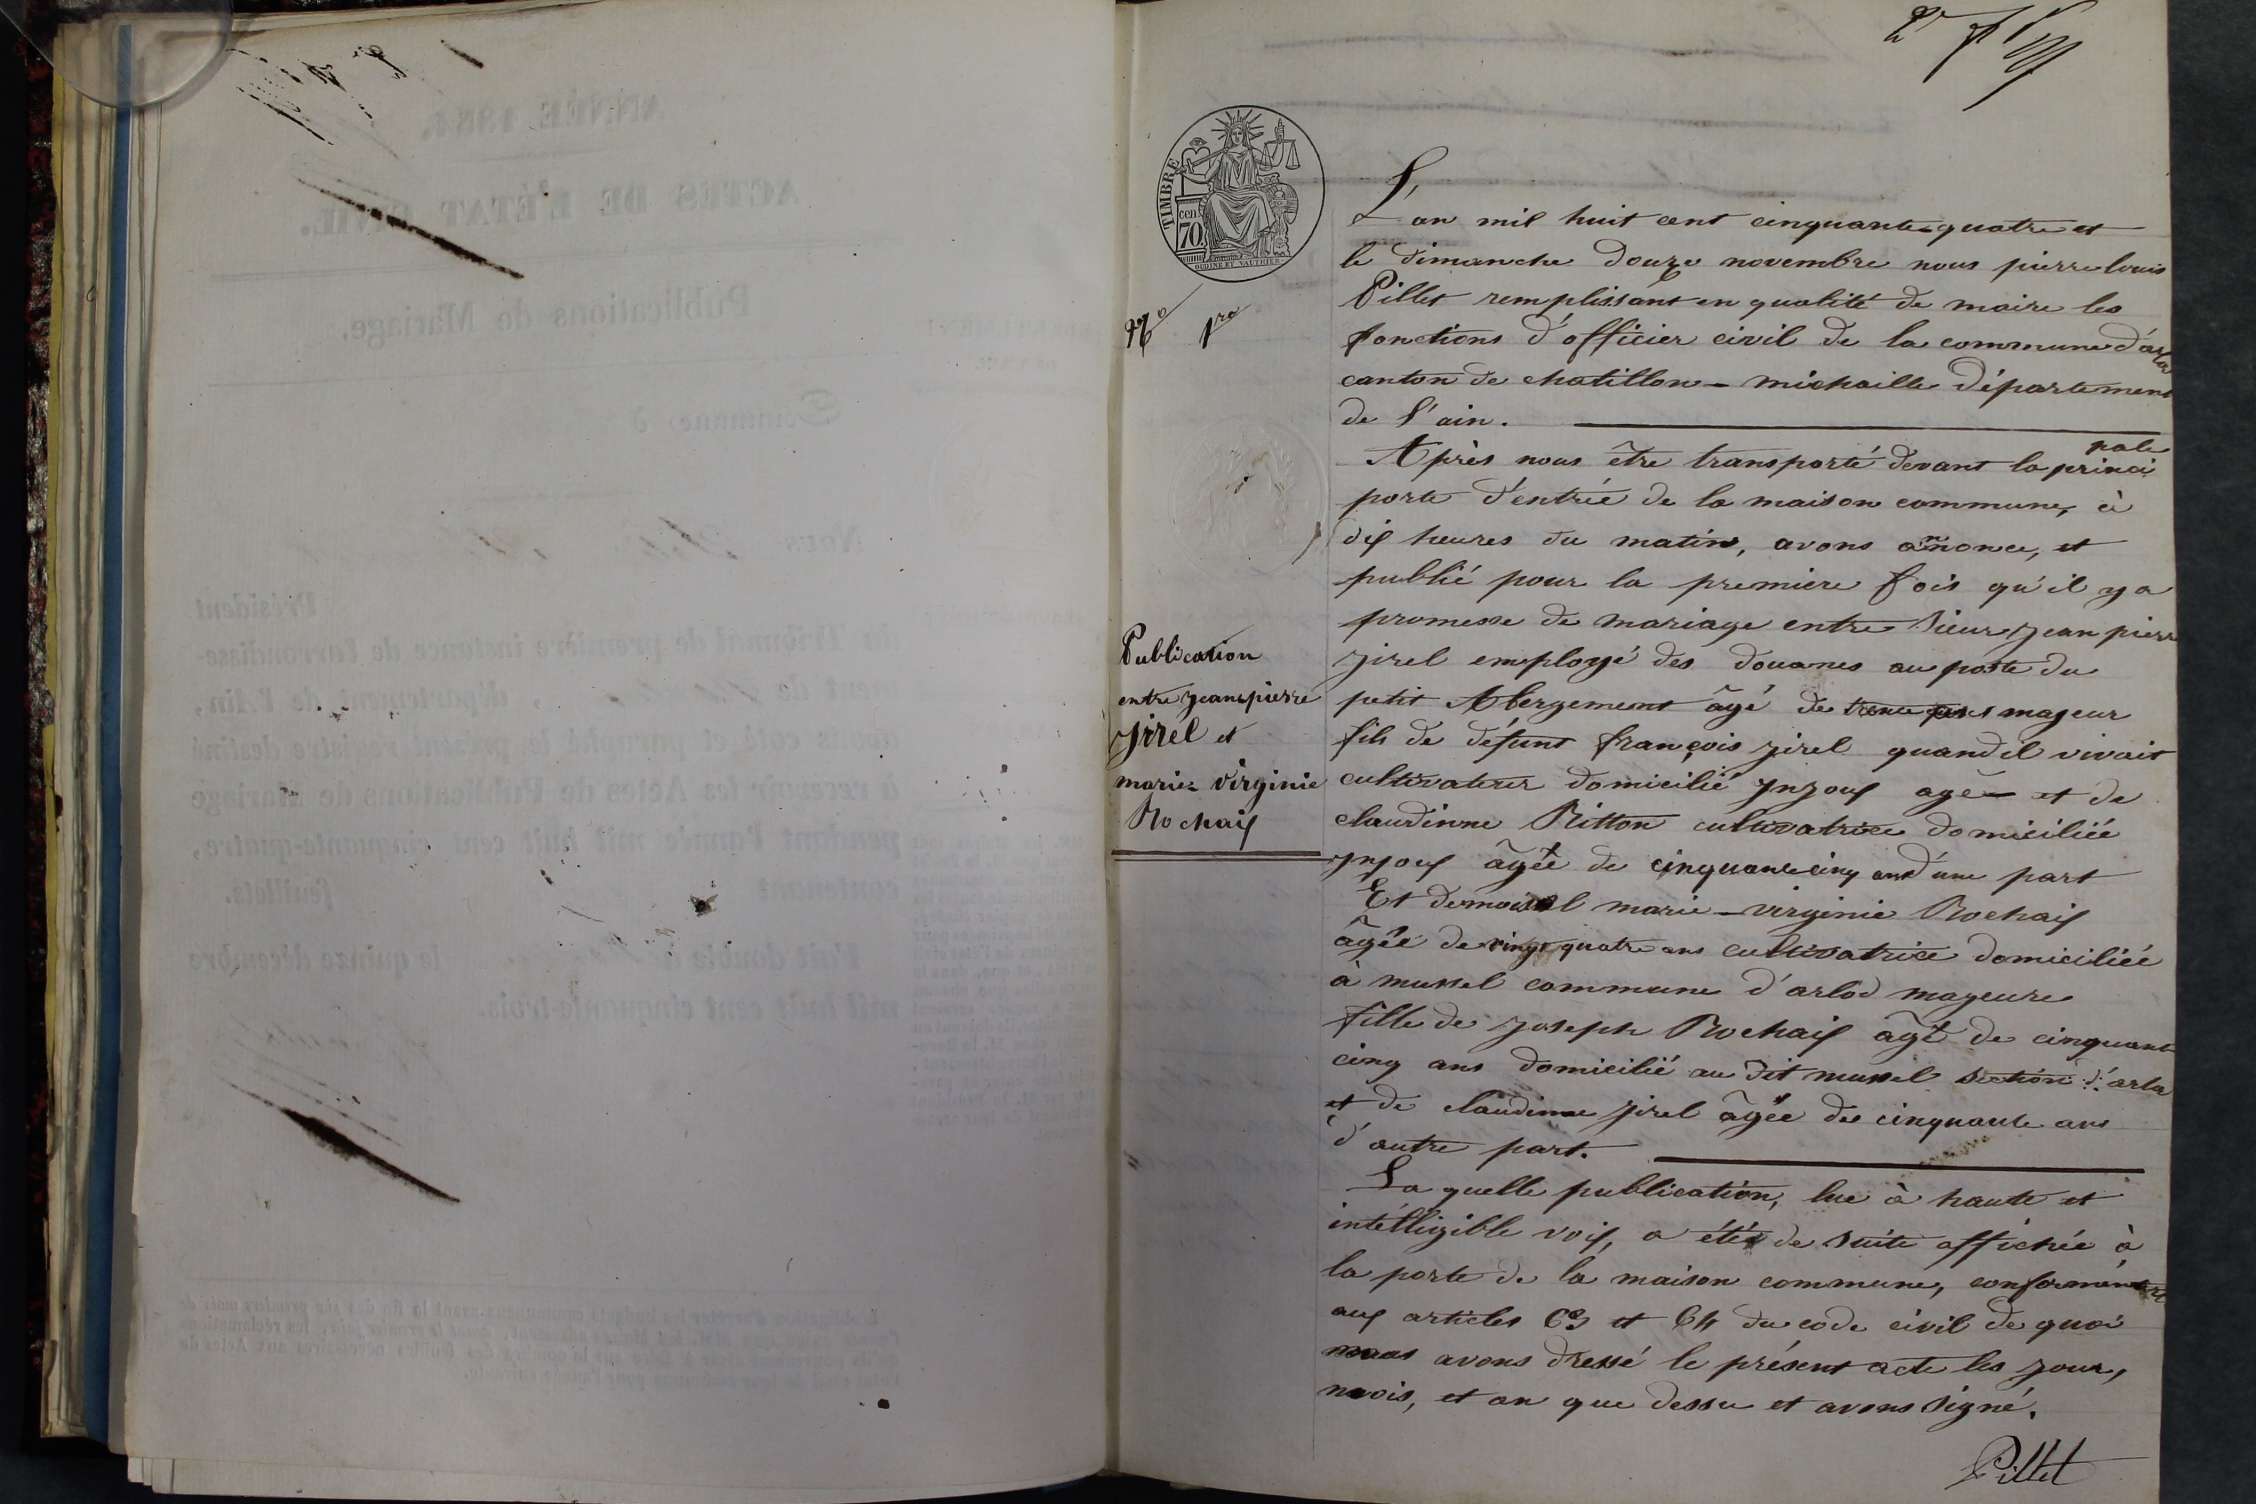 TIMBRE
cen
70
N° 1re
Publication
entre jean pierre
jirel et
marie virginie
Rochaix
L'an mil huit cent cinquante-quatre et
le dimanche douze novembre nous pierre louis
Pillet remplissant en qualité de maire les
fonctions d'officier civil de la commune d'arlod
canton de chatillon-michaille département
de l'ain.
Après nous être transporté devant la principale
porte d'entrée de la maison commune, à
dix heures du matin, avons annoncé, et
publié pour la premiere fois qu'il y a
promesse de mariage entre sieur jean pierre
jirel employé des douanes au poste du
petit Abergement âgé de majeur
fils de défunt françois jirel quand il vivait
cultivateur domicilié ynjoux agé et de
claudinne Ritton cultivatrice domiciliée
ynjoux âgée de cinquante cinq ans d'une part
Et demoisel marie-virginie Rochaix
âgée de vingt quatre ans cultivatrice domiciliée
à mussel commune d'arlod majeure
fille de joseph Rochaix agé de cinquante
cinq ans domicilié au dit mussel section d'arlod
et de claudinne jirel âgée de cinquante ans
d'autre part.
La quelle publication, lue à haute et
intélligible voix, a étée de suite affichée à
la porte de la maison commune, conformément
aux articles 63 et 64 du code civil de quoi
nous avons dressé le présent acte les jour,
mois, et an que dessu et avons signé.
Pillet